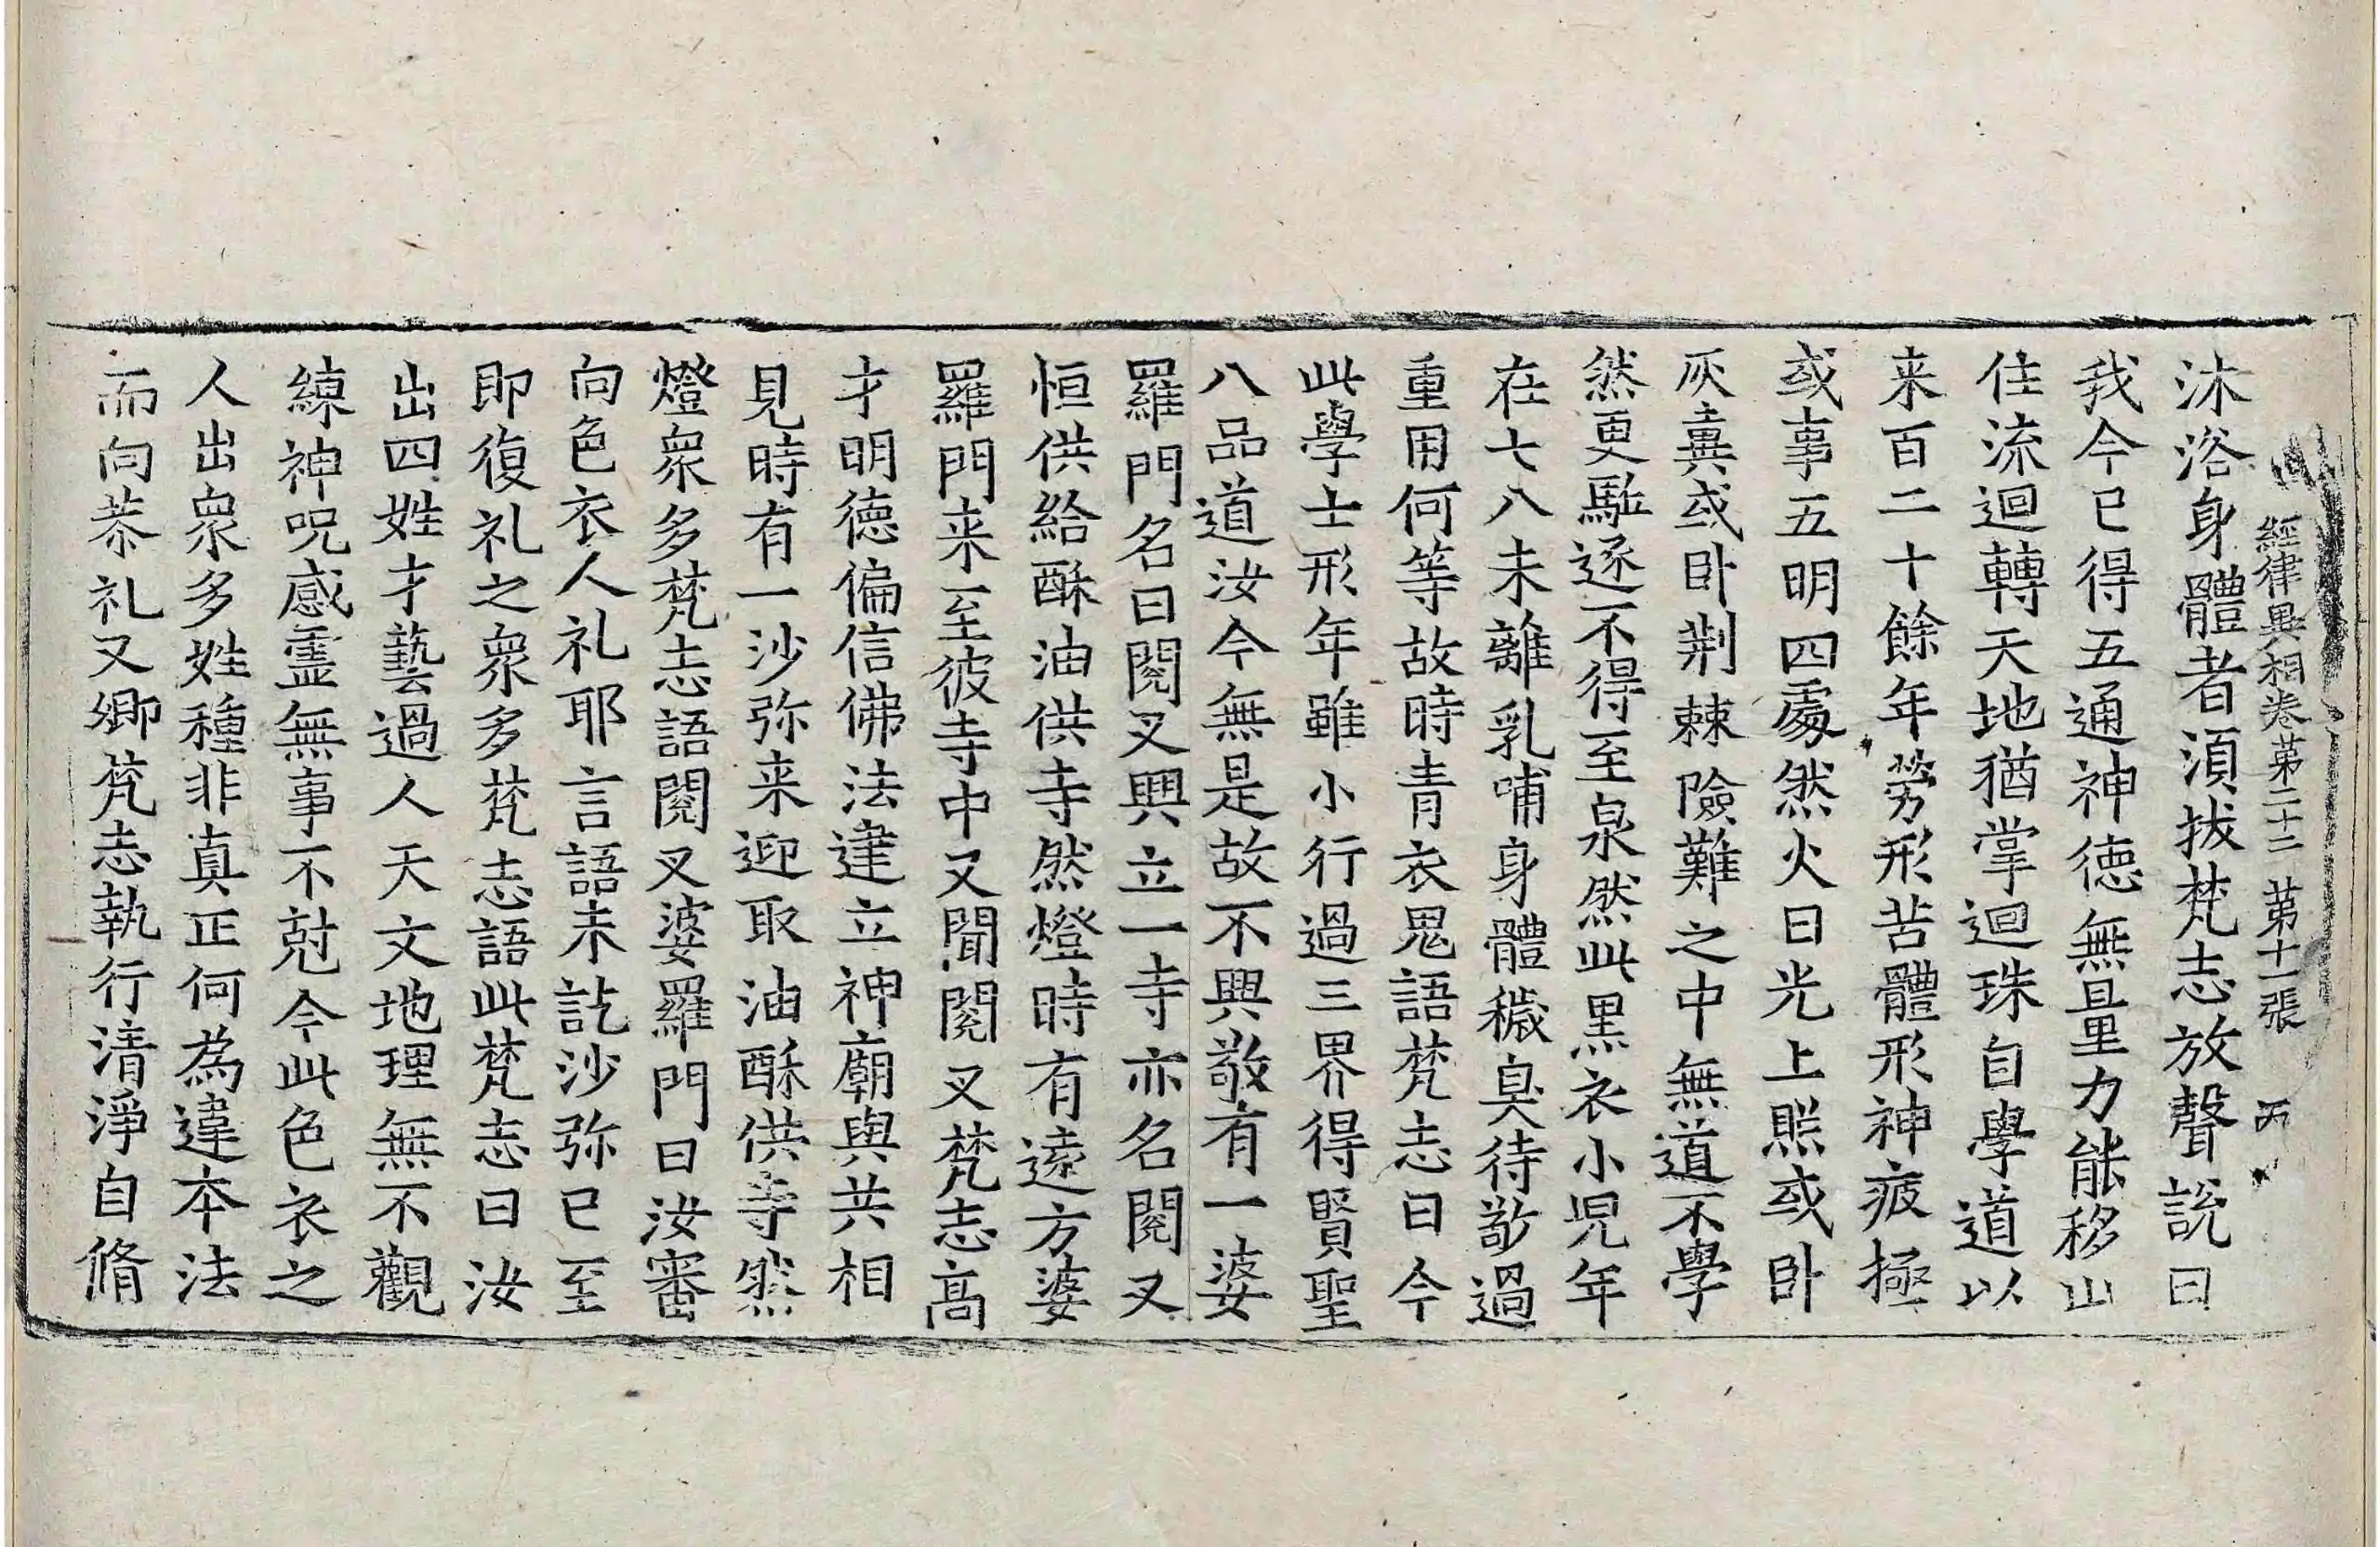 經律異相卷第二十二 第十一張 丙
沐浴身體者湏拔梵志放聲說曰
我今已得五通神德無量力能移山
住流迴轉天地猶掌迴珠自學道以
来百二十餘年勞形苦體形神疲極
或事五明四處然火日光上照或卧
灰糞或卧荆棘險難之中無道不學
然更駈逐不得至泉然此黑衣小児年
在七八未離乳哺身體穢臭待敬過
重用何等故時青衣鬼語梵志曰今
此學士形年雖小行過三界得賢聖
八品道汝今無是故不興敬有一婆
羅門名曰閱叉興立一寺亦名閱叉
恒供給酥油供寺然燈時有遠方婆
羅門来至彼寺中又聞閱叉梵志高
才明德偏信佛法建立神廟與共相
見時有一沙弥来迎取油酥供寺然
燈衆多梵志語閱叉婆羅門曰汝審
向色衣人礼耶言語未訖沙弥已至
即復礼之衆多梵志語此梵志曰汝
出四姓才藝過人天文地理無不觀
練神呪感靈無事不尅今此色衣之
人出衆多姓種非真正何為違本法
而向恭礼又卿梵志執行清淨自脩